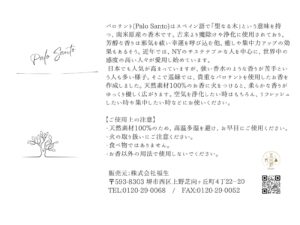 Palo Santo
パロサント(Palo Santo)はスペイン語で「聖なる木」という意味を持つ、南米原産の香木です。古来より魔除けや浄化に使用されており、芳醇な香りは邪気を祓い幸運を呼び込む他、癒しや集中力アップの効果もあるそう。近年では、NYのサステナブルな人を中心に、世界中の感度の高い人々が愛用し始めています。
日本でも人気が高まっていますが、強い香木のような香りが苦手という人も多い様子。そこで菰樽では、貴重なパロサントを使用したお香を作成しました。天然素材100%のお香に火をつけると、柔らかな香りがゆっくり優しく広がります。空気を浄化したい時はもちろん、リフレッシュしたい時や集中したい時などにお使いください。
【ご使用上の注意】
・天然素材100%のため、高温多湿を避け、お早目にご使用ください。
・火の取り扱いにご注意ください。
・食べ物ではありません。
・お香以外の用法で使用しないでください。
販売元:株式会社福生
〒593-8303 堺市西区上野芝向ヶ丘町4丁22−20
TEL:0120-29-0068 / FAX:0120-29-0052